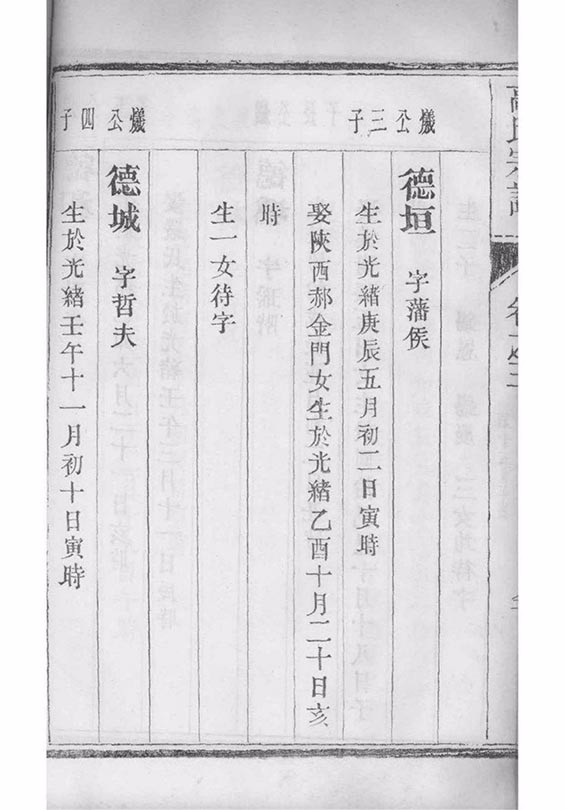 高氏宗譜
巘公三子
德垣 字藩侯
生於光緒庚辰五月初二日寅時
娶陝西郝金門女生於光緒乙酉十月二十日亥
時
生一女待字
巘公四子
德城 字哲夫
生於光緒壬午十一月初十日寅時